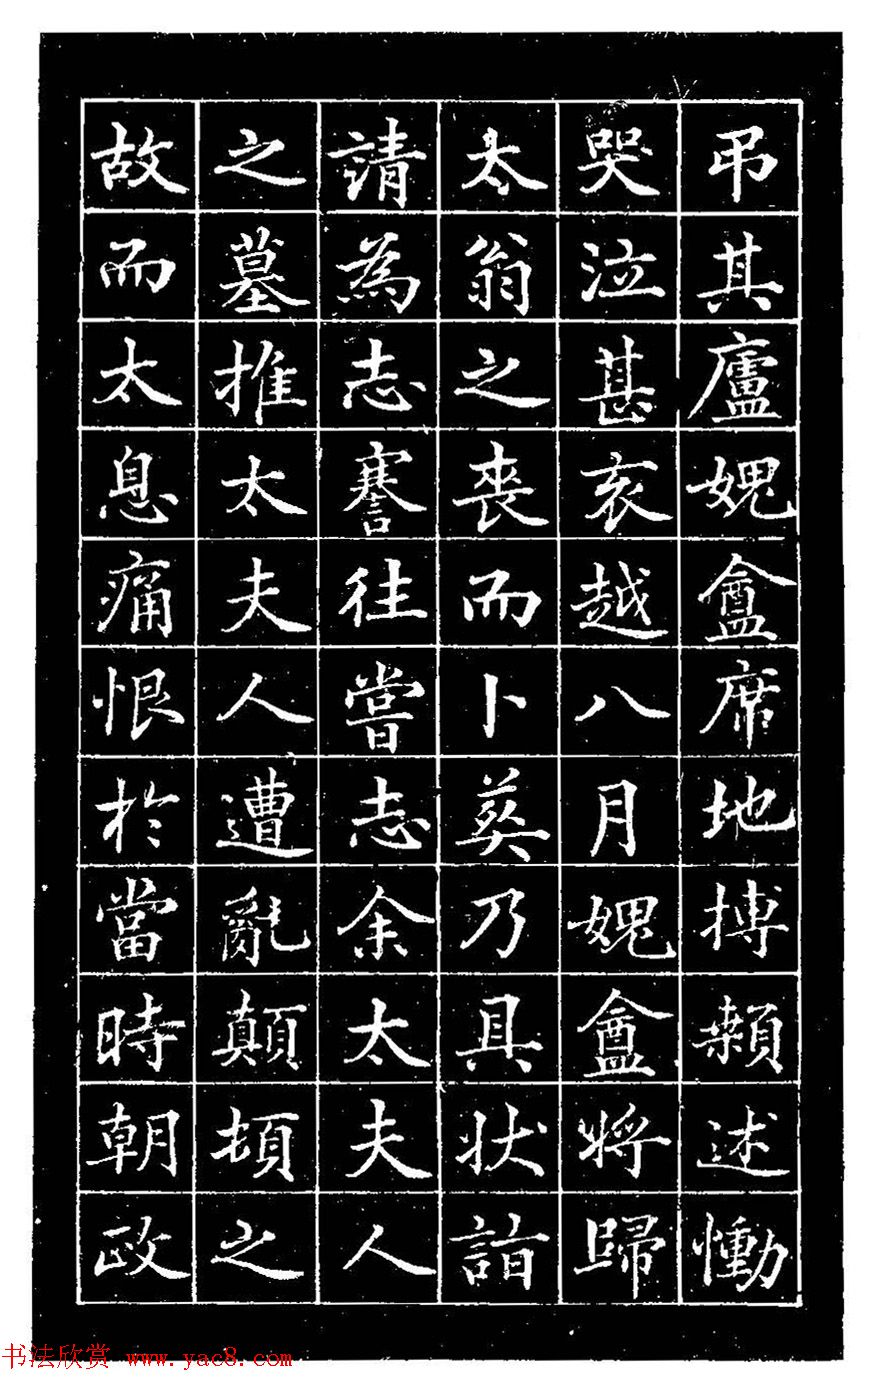 吊其廬媿盦席地搏顙述慟
哭泣甚哀越八月媿盦將歸
太翁之喪而卜葬乃具狀詣
請為志謇往嘗志余太夫人
之墓推太夫人遭亂顛頓之
故而太息痛恨於當時朝政
书法欣赏 www.yac8.com